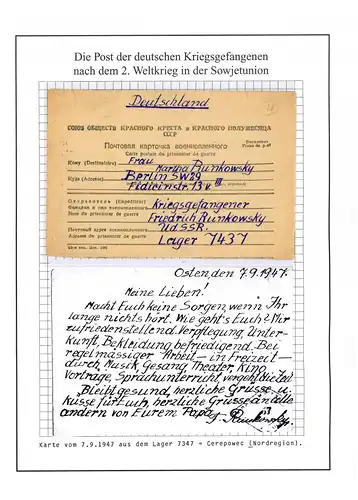 Die Post der deutschen Kriegsgefangenen
nach dem 2. Weltkrieg in der Sowjetunion
Deutschland
СОЮЗ ОБЩЕСТВ КРАСНОГО КРЕСТА и КРАСНОГО ПОЛУМЕСЯЦА
СССР
Почтовая карточка военнопленного
Carte postale du prisonnier de guerre
Кому (Destinataire) Frau
Martha Runkowsky
Куда (Adresse) Berlin SW29
Fidicinstr. 13 v. III
Отправитель (Expéditeur) Kriegsgefangener
Фамилия и имя военнопленного
Nom du prisonnier de guerre Friedrich Runkowsky
Почтовый адрес военнопленного UdSSR.
Adresse du prisonnier de guerre Lager 7437
Osten, den 7.9.1947.
Meine Lieben!
Macht Euch keine Sorgen, wenn Ihr
lange nichts hört. Wie geht's Euch? Mir
zufriedenstellend. Verpflegung, Unter-
kunft, Bekleidung befriedigend. Bei
regelmässiger Arbeit – in Freizeit –
durch Musik, Gesang, Theater, Kino,
Vorträge, Sprachunterricht, vergeht die Zeit.
Bleibt gesund, herzliche Grüsse u.
Küsse für Euch, herzliche Grüsse an alle
andern von Eurem Papa
Runkowsky
Karte vom 7.9.1947 aus dem Lager 7347 = Cerepowec (Nordregion).